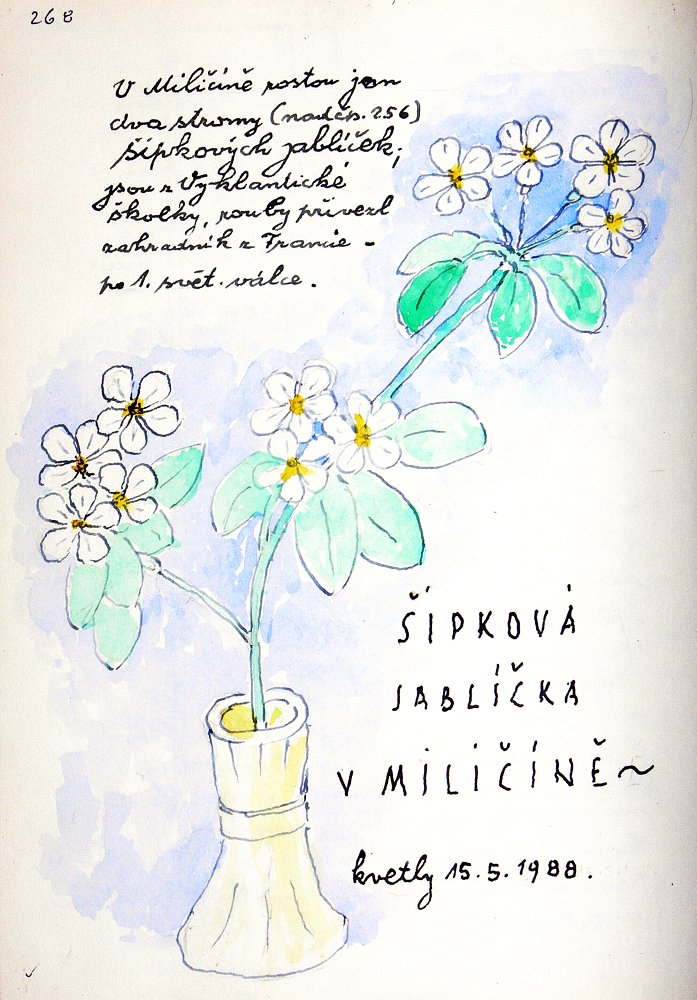 268
V Miličíně rostou jen
dva stromy (nad čp. 256)
šípkových jablíček,
jsou z Vyklantické
školky, rouby přivezl
zahradník z Francie -
po 1. svět. válce.
ŠÍPKOVÁ
JABLÍČKA
V MILIČÍNĚ~
kvetly 15.5.1988.